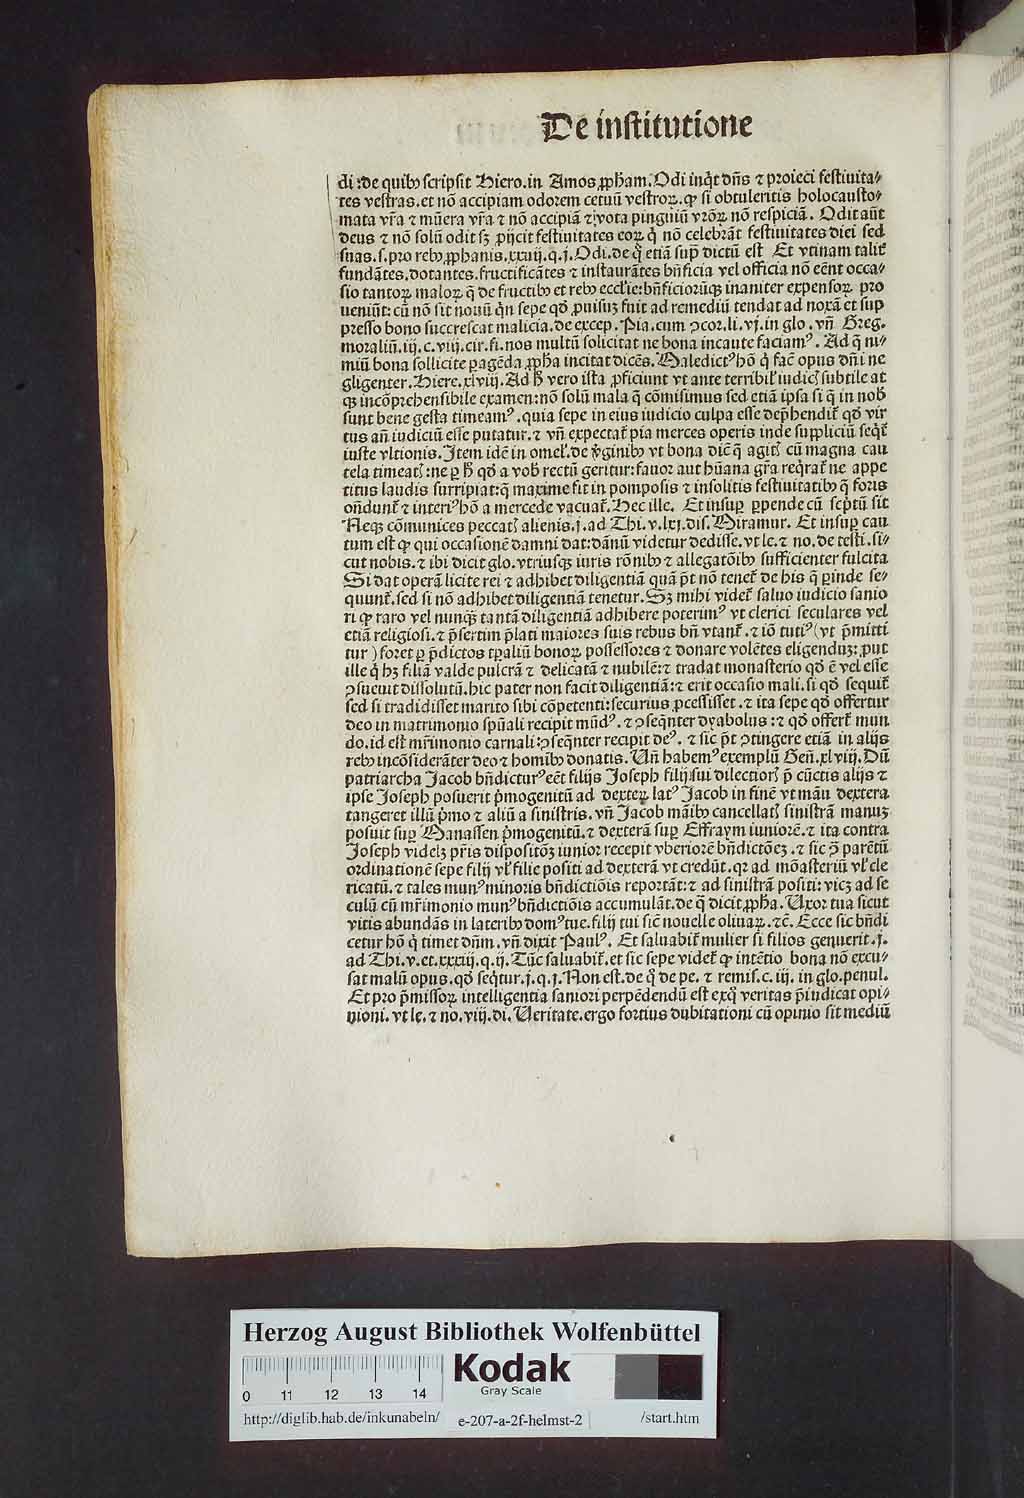 De institutione
di : de quibꝫ scripsit Hiero. in Amos ꝓpham. Odi inq̇t dn̄s ⁊ proieci festiuita⸗
tes vestras. et nō accipiam odorem cetuū vestroꝝ. ꝙ si obtuleritis holocausto⸗
mata vr̄a ⁊ mūera vr̄a ⁊ nō accipiā ⁊ vota pinguiū vr̄oꝝ nō respiciā. Odit aūt
deus ⁊ nō solū odit sꝫ ꝓijcit festiuitates eoꝝ q̇ nō celebrāt festiuitates diei sed
suas. s. pro rebꝫ ꝓphanis. xxvij. q. j. Odi. de q̇ etiā sup̄ dictū est Et vtinam talit᷑
fundātes. dotantes. fructificātes ⁊ instaurātes bn̄ficia vel officia nō eēnt occa⸗
sio tantoꝝ maloꝝ q̄ de fructibꝫ et rebꝫ eccl̄ie: bn̄ficiorūqꝫ inaniter expensoꝝ pro
ueniūt: cū nō sit nouū q̇n sepe qd̄ ꝓuisuꝫ fuit ad remediū tendat ad noxā et sup
presso bono succrescat malicia. de excep. Pia. cum ꝯcor. li. vj. in glo. vn̄ Greg.
moraliū. iij. c. vij. cir. fi. nos multū solicitat ne bona incaute faciamꝰ. Ad q̄ ni⸗
miū bona sollicite ꝑagēda ꝓpha incitat dicēs. Maledictꝰ hō q̇ fac̄ opus dn̄i ne
gligenter. Hiere. xlviij. Ad h̄ vero ista ꝓficiunt vt ante terribil᷑ iudicꝭ subtile at
qꝫ incōprehensibile examen: nō solū mala q̄ cōmisimus sed etiā ipsa si q̄ in nob̄
sunt bene gesta timeamꝰ. quia sepe in eius iudicio culpa esse dep̄hendit᷑ qd̄ vir
tus an̄ iudiciū esse putatur. ⁊ vn̄ expectat᷑ pia merces operis inde suppliciū seq̇t᷑
iuste vltionis. Item idē in omel᷑. de v̇ginibꝫ vt bona dic̄ q̄ agitꝭ cū magna cau
tela timeatꝭ: ne ꝑ h̄ qd̄ a vob̄ rectū geritur: fauor aut hūana gr̄a req̇rat᷑ ne appe
titus laudis surripiat: q̄ maxime fit in pomposis ⁊ insolitis festiuitatibꝫ q̄ foris
on̄dunt᷑ ⁊ interiꝰ hō a mercede vacuat᷑. Hec ille. Et insuꝑ ꝑpende cū sc̄ptū sit
Neqꝫ cōmunices peccatꝭ alienis. j. ad Thi. v. lxj. dis. Miramur. Et insuꝑ cau
tum est ꝙ qui occasionē damni dat: dānū videtur dedisse. vt le. ⁊ no. de testi. si⸗
cut nobis. ⁊ ibi dicit glo. vtriusqꝫ iuris rōnibꝫ ⁊ allegatōibꝫ sufficienter fulcita
Si dat operā licite rei ⁊ adhibet diligentiā quā p̄t nō tenet᷑ de his q̄ ꝑinde se⸗
quunt᷑. sed si nō adhibet diligentiā tenetur. Sꝫ mihi videt᷑ saluo iudicio sanio
ri ꝙ raro vel nunqꝫ̄ tantā diligentiā adhibere poterimꝰ vt clerici seculares vel
etiā religiosi. ⁊ p̄sertim p̄lati maiores suis rebus bn̄ vtant᷑. ⁊ iō tutiꝰ (vt p̄mitti
tur) foret ꝑ p̄dictos tꝑaliū bonoꝝ possessores ⁊ donare volētes eligenduꝫ: ꝓut
ille q̇ hꝫ filiā valde pulcrā ⁊ delicatā ⁊ nubilē: ⁊ tradat monasterio qd̄ ē vel esse
ꝯsueuit dissolutū. hic pater non facit diligentiā: ⁊ erit occasio mali. si qd̄ sequit᷑
sed si tradidisset marito sibi cōpetenti: securius ꝓcessisset. ⁊ ita sepe qd̄ offertur
deo in matrimonio spūali recipit mūdꝰ. ⁊ ꝯseq̄nter dyabolus: ⁊ qd̄ offert᷑ mun
do. id est mr̄imonio carnali: ꝯseq̄nter recipit deꝰ. ⁊ sic p̄t ꝯtingere etiā in alijs
rebꝫ incōsiderāter deo ⁊ homībꝫ donatis. Vn̄ habemꝰ exemplū Gen̄. xlviij. Dū
patriarcha Jacob bn̄dicturꝰ eēt filijs Joseph filij sui dilectiorꝭ p̄ cūctis alijs ⁊
ipse Joseph posuerit p̄mogenitū ad dexteꝝ latꝰ Jacob in finē vt manu dextera
tangeret illū p̄mo ⁊ aliū a sinistris. vn̄ Jacob māibꝫ cancellatꝭ sinistrā manuꝫ
posuit suꝑ Manassen p̄mogenitū. ⁊ dexterā suꝑ Effraym iuniorē. ⁊ ita contra
Joseph videlꝫ pr̄is dispositōꝫ iunior recepit vberiorē bn̄dictōeꝫ. ⁊ sic ꝯ̄ parētū
ordinationē sepe filij vl᷑ filie positi ad dexterā vt credūt. qꝛ ad mōasteriū vl᷑ cle
ricatū. ⁊ tales munꝰ minoris bn̄dictiōis reportāt: ⁊ ad sinistrā positi: vicꝫ ad se
culū cū mr̄imonio munꝰ bn̄dictiōis accumulāt. de q̄ dicit ꝓpha. Vxor tua sicut
vitis abundās in lateribꝫ domꝰ tue. filij tui sic̄ nouelle oliuaꝝ. ⁊c̄. Ecce sic bn̄di
cetur hō q̇ timet dn̄m. vn̄ dixit Paulꝰ. Et saluabit᷑ mulier si filios genuerit. j.
ad Thi. v. et. xxxiij. q. ij. Tūc saluabit᷑. et sic sepe videt᷑ ꝙ intētio bona nō excu⸗
sat malū opus. qd̄ seq̇tur. j. q. j. Non est. de q̄ de pe. ⁊ remis. c. iij. in glo. penul.
Et pro p̄missoꝝ intelligentia saniori perpēdendū est exq̇ veritas p̄iudicat opi⸗
nioni. vt le. ⁊ no. viij. di. Veritate. ergo fortius dubitationi cū opinio sit mediū
Herzog August Bibliothek Wolfenbüttel
Kodak
Gray Scale
0 11 12 13 14
http://diglib.hab.de/inkunabeln/ e-207-a-2f-helmst-2 /start.htm